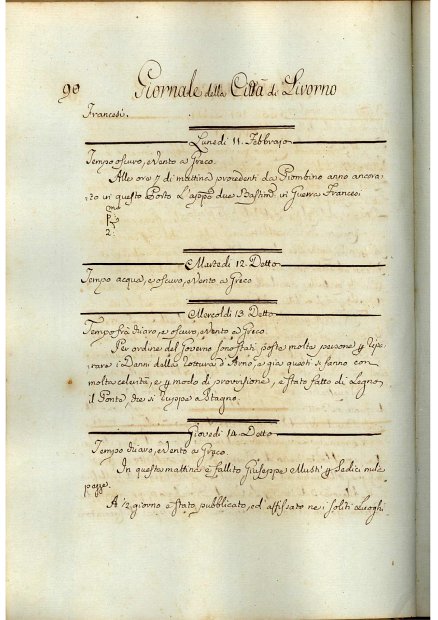 90
Giornale della Città di Livorno
Francesi.
Lunedì 11. Febbrajo
Tempo oscuro, e Vento a Greco.
Alle ore 7 di mattina procedenti da Piombino anno ancora-
to in questo Porto L'appo due Bastimti in Guerra Francesi
2.
Martedì 12. Detto
Tempo acqua, e oscuro, e Vento a Greco
Mercoldì 13. Detto
Tempo frà chiaro, e oscuro, e Vento a Greco.
Per ordine del Governo sono stati posta molte persone p ripa-
rare i Danni della rottura d'Arno, e già questi si fanno con
molta celerità, e p modo di provisione, è stato fatto di Legno
il Ponte, che si ruppe a Stagno.
Giovedì 14. Detto
Tempo chiaro, e Vento a Greco.
In questa mattina è fallito Giuseppe Musti p Sedici mile
pezze.
A ½ giorno è stato pubblicato, ed affissato nei soliti Luoghi